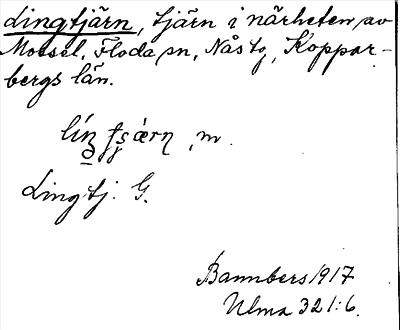 Lingtjärn, tjärn i närheten av
Mossel, Floda sn, Nås tg, Koppar-
bergs län.
m.
Lingtj. G.
Bannbers 1917
Ulma 321:6.